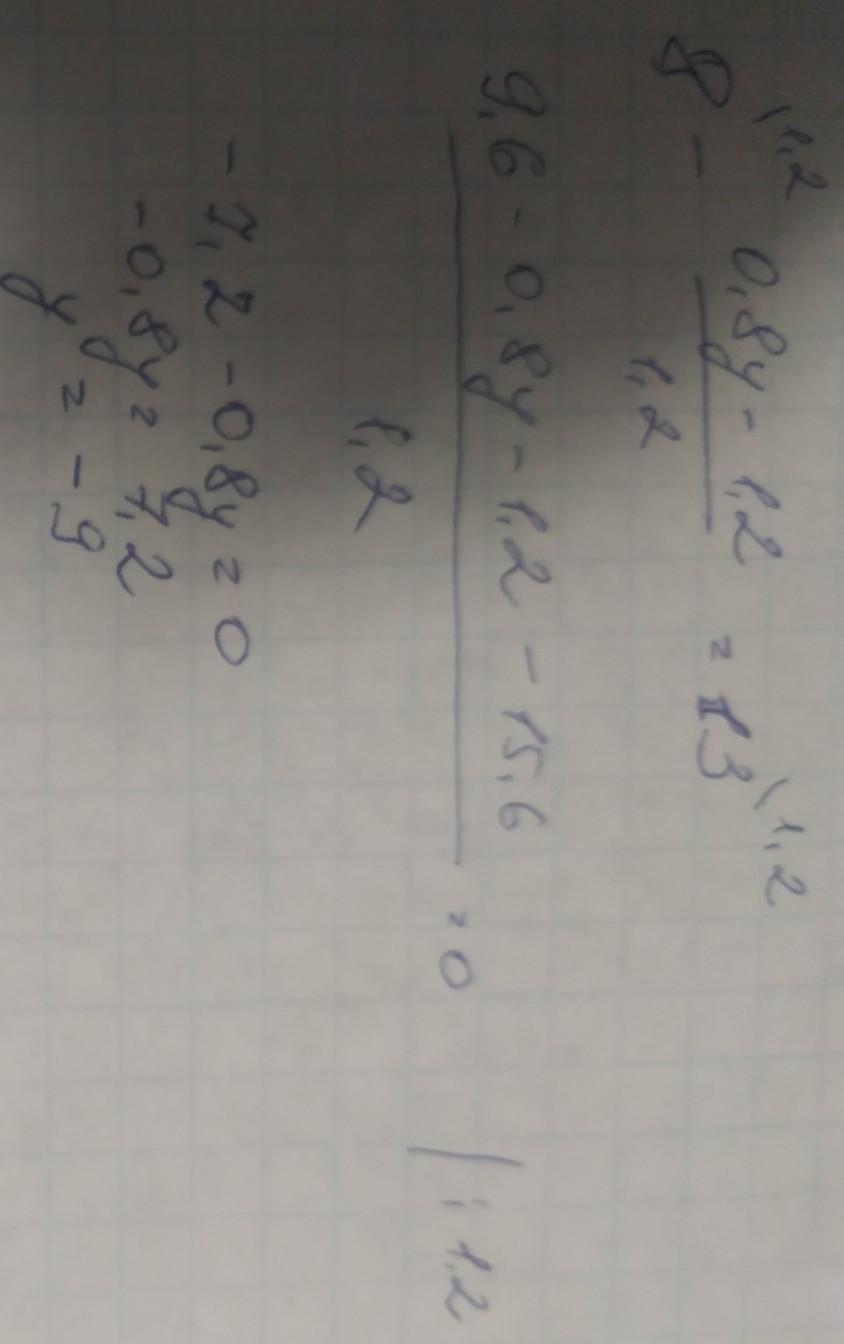 8 \1,2 - (0,8y - 1,2)/1,2 = 13 \1,2
(9,6 - 0,8y - 1,2 - 15,6)/1,2 = 0 | : 1,2
- 7,2 - 0,8y = 0
- 0,8y = 7,2
y = - 9